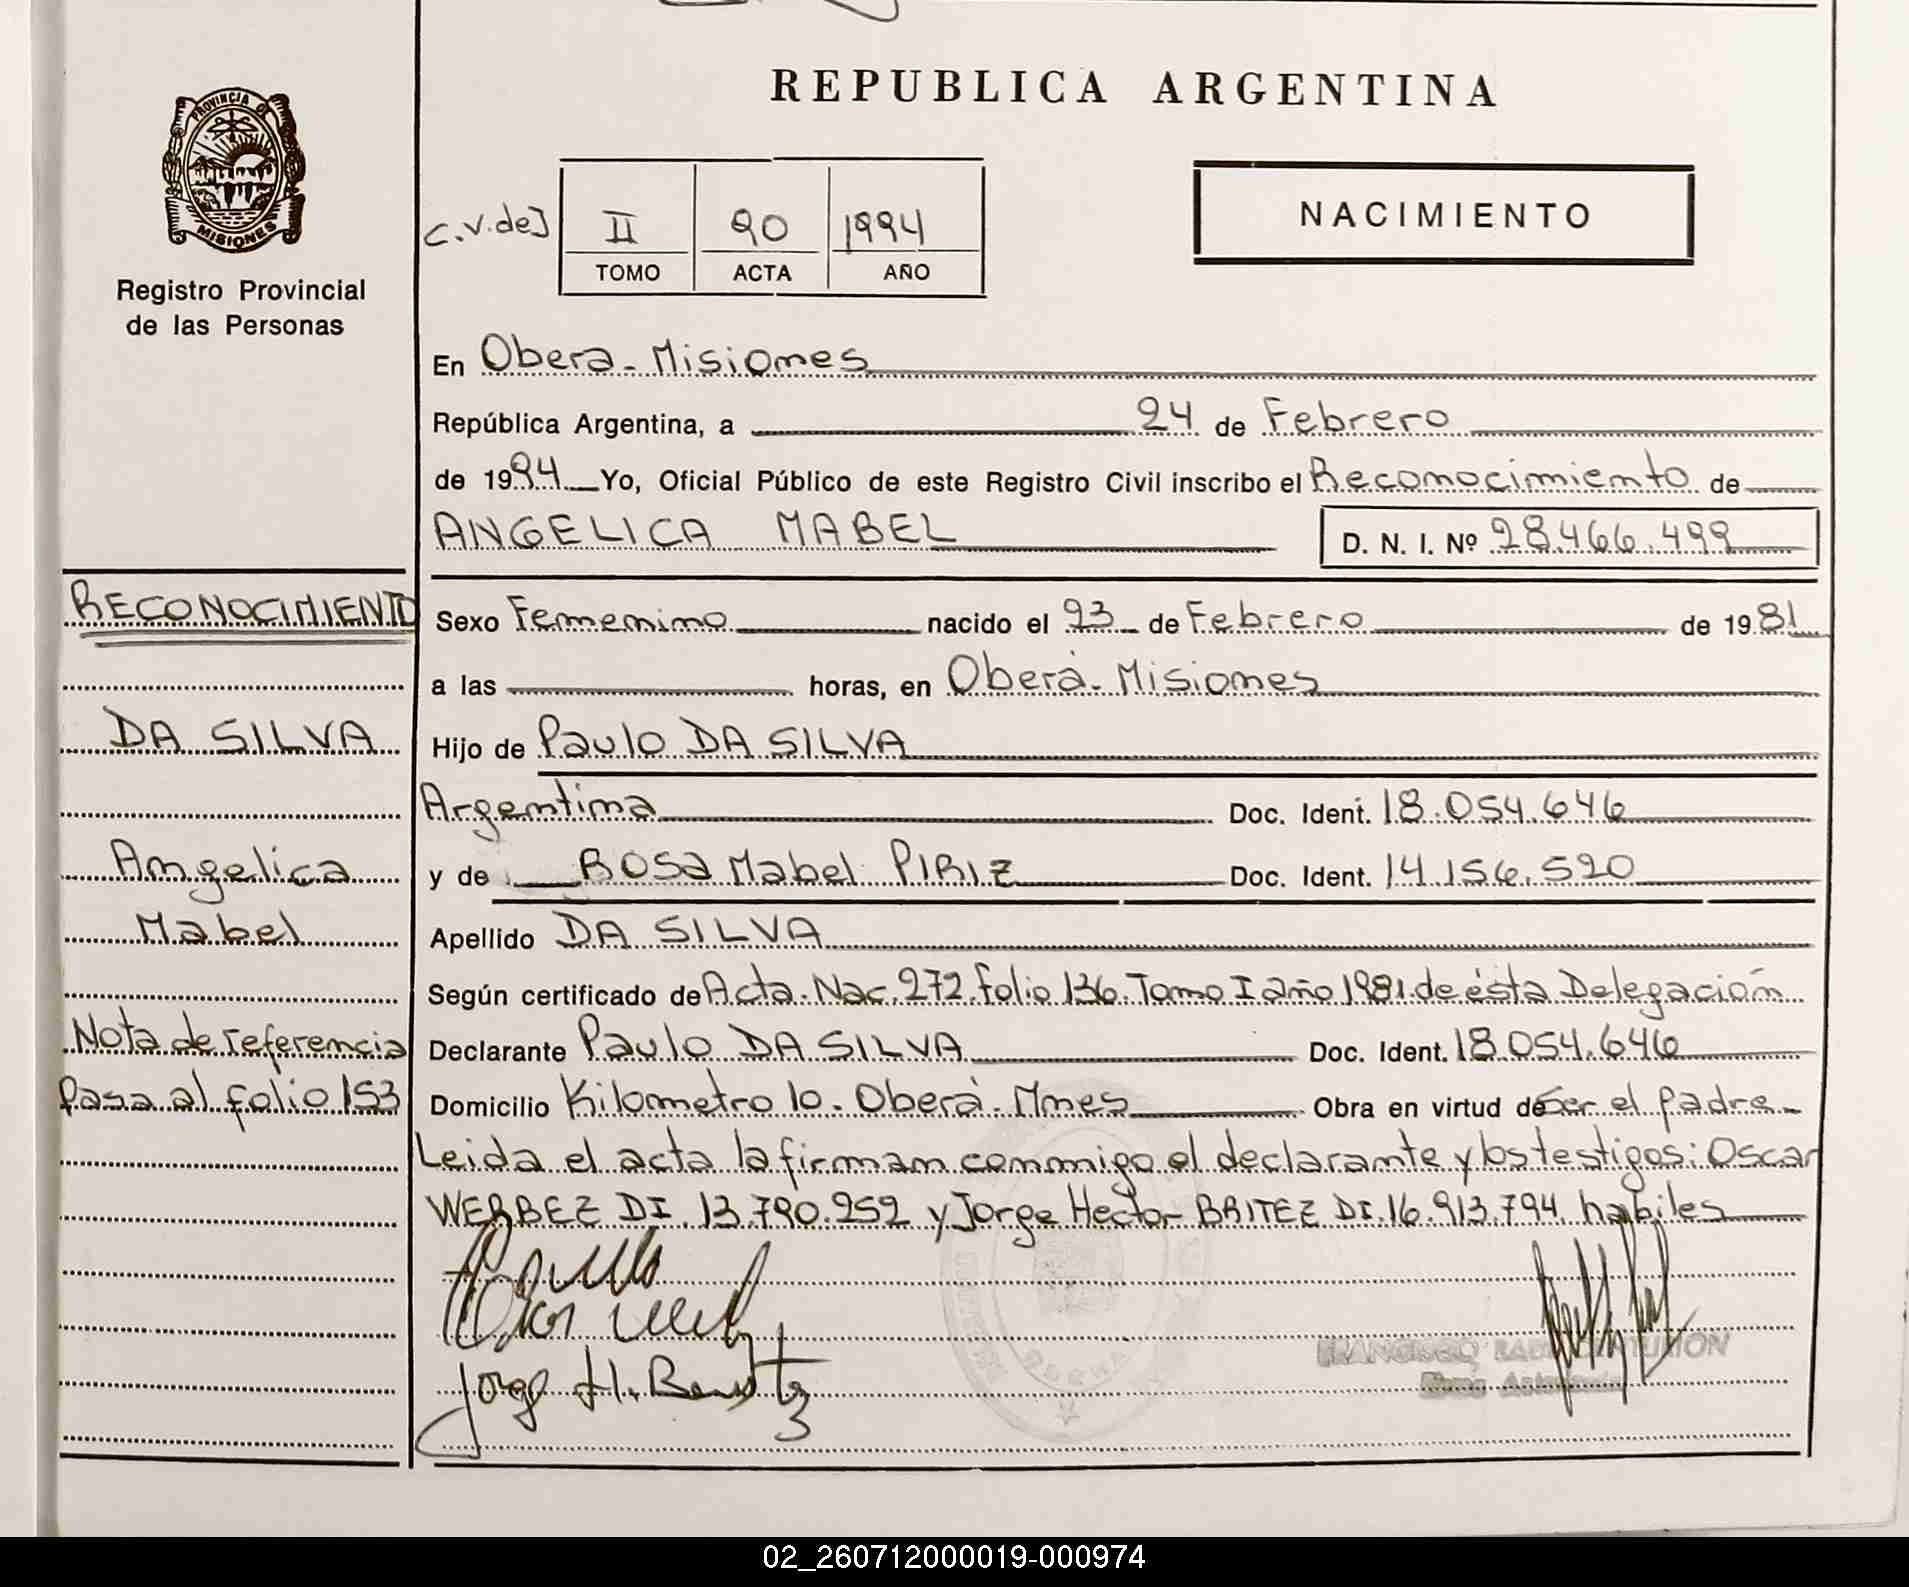 REPUBLICA ARGENTINA
PROVINCIA DE
MISIONES
Registro Provincial
de las Personas
c.v.de]
II 90 1994
TOMO ACTA AÑO
NACIMIENTO
En Obera - Misiones
República Argentina, a 24 de Febrero
de 1994 Yo, Oficial Público de este Registro Civil inscribo el Reconocimiento de
ANGELICA MABEL D. N. I. Nº 28.466.499
RECONOCIMIENTO
DA SILVA
Angelica
Mabel
Nota de referencia
Pasa al folio 153
Sexo Femenino nacido el 23 de Febrero de 1981
a las horas, en Oberá - Misiones
Hijo de Paulo DA SILVA
Argentina Doc. Ident. 18.054.646
y de ROSA Mabel PIRIZ Doc. Ident. 14.156.520
Apellido DA SILVA
Según certificado de Acta. Nac. 272. folio 136. Tomo I año 1981. de ésta Delegación
Declarante Paulo DA SILVA Doc. Ident. 18.054.646
Domicilio Kilometro 10 - Oberá - Mnes Obra en virtud de Ser el padre -
Leida el acta la firman conmigo el declarante y los testigos: Oscar
WERBEZ DI. 13.790.252 y Jorge Hector BRITEZ DI. 16.913.794. habiles
Jorge H.
FRANCISCO
02_260712000019-000974